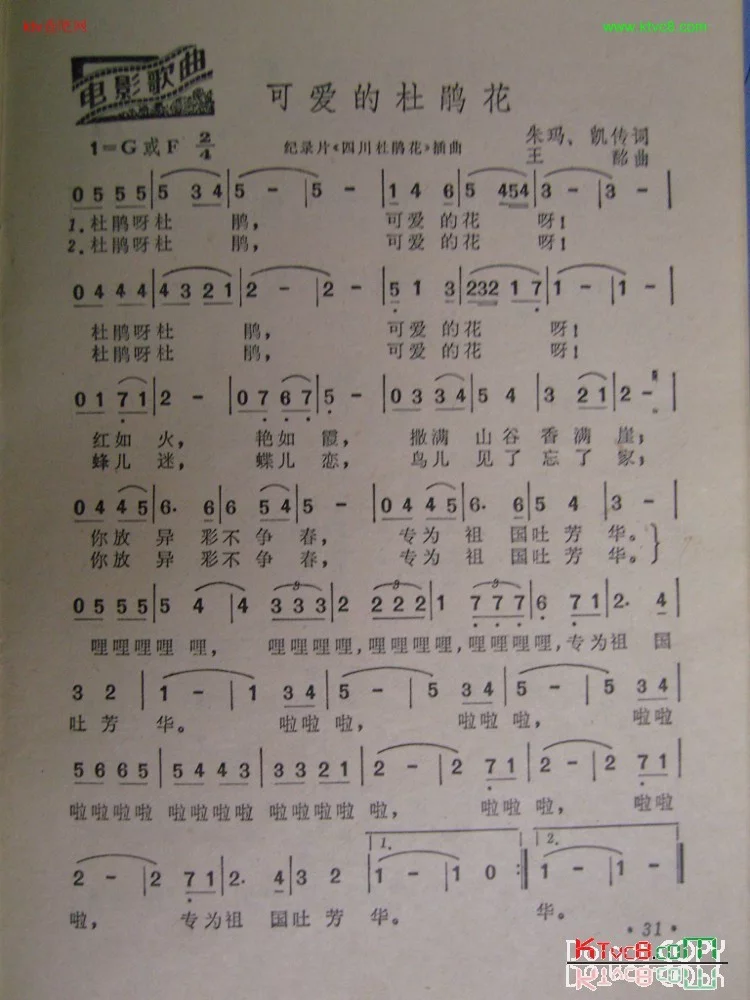 www.ktvc8.com
电影歌曲
可爱的杜鹃花
1=G或F 2/4
纪录片《四川杜鹃花》插曲
朱玛、凯传词
王 酩曲
0 5 5 5 | 5 3 4 | 5 - | 5 - | 1 4 6 | 5 454 | 3 - | 3 - |
1.杜鹃呀杜 鹃， 可爱的花 呀！
2.杜鹃呀杜 鹃， 可爱的花 呀！
0 4 4 4 | 4 3 2 1 | 2 - | 2 - | 5 1 3 | 232 1 7 | 1 - | 1 - |
杜鹃呀杜 鹃， 可爱的花 呀！
杜鹃呀杜 鹃， 可爱的花 呀！
0 1 7 1 | 2 - | 0 7 6 7 | 5 - | 0 3 3 4 | 5 4 | 3 2 1 | 2 - |
红如 火， 艳如霞， 撒满 山谷香满崖；
蜂儿 迷， 蝶儿恋， 鸟儿 见了忘了家；
0 4 4 5 | 6. 6 | 6 5 4 | 5 - | 0 4 4 5 | 6. 6 | 5 4 | 3 - |
你放 异 彩不争春， 专为 祖 国吐芳华。
你放 异 彩不争春， 专为 祖 国吐芳华。
0 5 5 5 | 5 4 | 4 3 3 3 | 2 2 2 2 | 1 7 7 7 | 6 7 1 | 2. 4 |
哩哩哩哩 哩， 哩哩哩哩，哩哩哩哩，哩哩哩哩，专为祖 国
3 2 | 1 - | 1 3 4 | 5 - | 5 3 4 | 5 - | 5 3 4 |
吐芳 华。 啦啦 啦， 啦啦 啦， 啦啦
5 6 6 5 | 5 4 4 3 | 3 3 2 1 | 2 - | 2 7 1 | 2 - | 2 7 1 |
啦啦啦啦 啦啦啦啦 啦啦啦啦 啦， 啦啦 啦， 啦啦
1. 2.
2 - | 2 7 1 | 2. 4 | 3 2 | 1 - | 1 0 :‖ 1 - | 1 - ‖
啦， 专为祖 国吐芳 华。 华。
· 31 ·
KTvc8.com